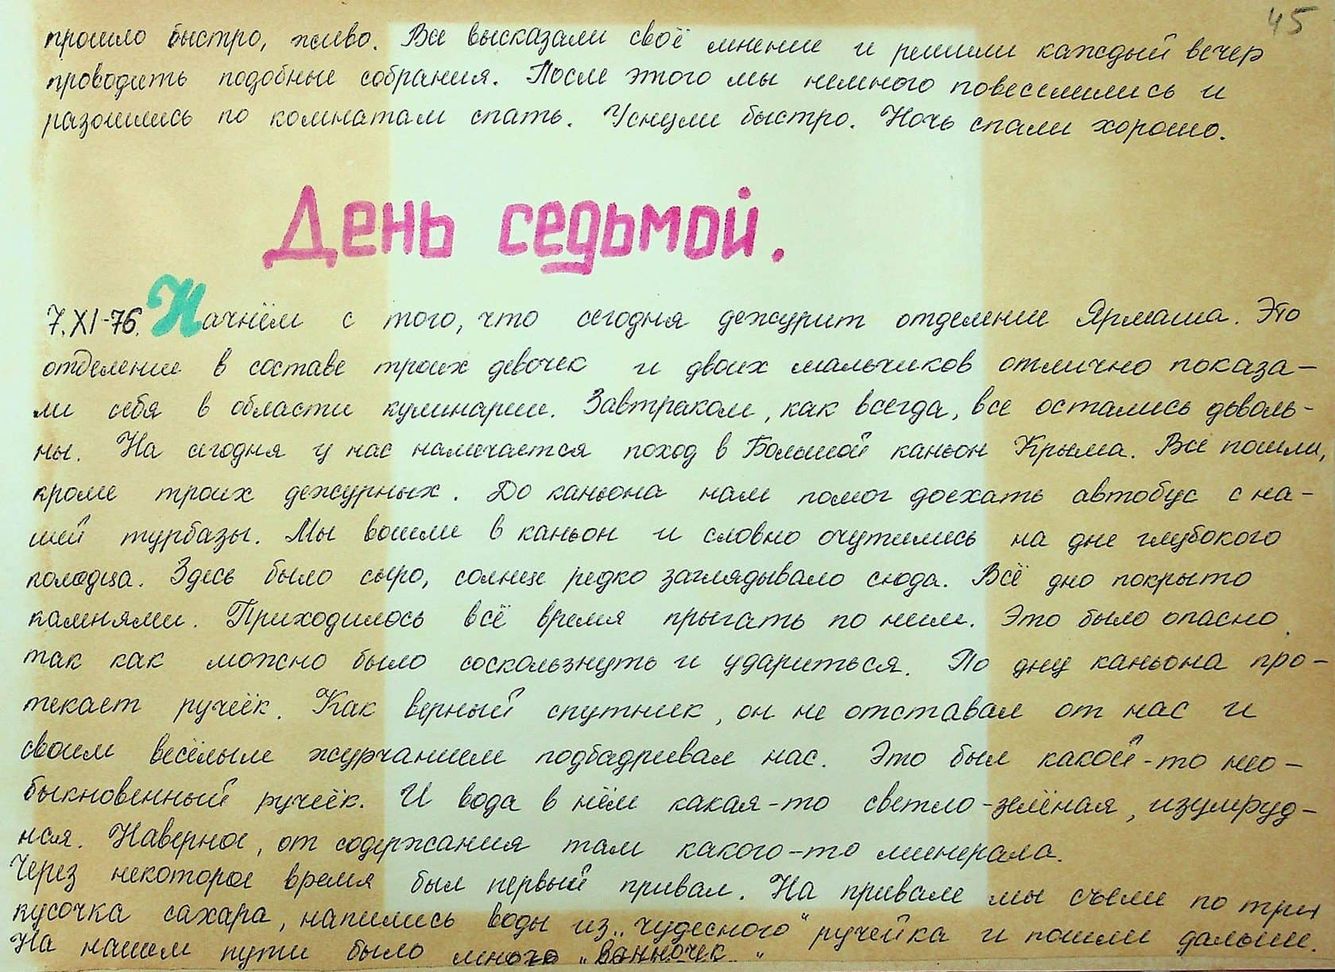 45
прошло быстро, живо. Все высказали своё мнение и решили каждый вечер
проводить подобные собрания. После этого мы немного повеселились и
разошлись по комнатам спать. Уснули быстро. Ночь спали хорошо.
День седьмой.
7.XI-76. Начнём с того, что сегодня дежурит отделение Ярмаша. Это
отделение в составе троих девочек и двоих мальчиков отлично показа-
ли себя в области кулинарии. Завтраком, как всегда, все остались доволь-
ны. На сегодня у нас намечается поход в Большой каньон Крыма. Все пошли,
кроме троих дежурных. До каньона нам помог доехать автобус с на-
шей турбазы. Мы вошли в каньон и словно очутились на дне глубокого
колодца. Здесь было сыро, солнце редко заглядывало сюда. Всё дно покрыто
камнями. Приходилось всё время прыгать по ним. Это было опасно,
так как можно было соскользнуть и удариться. По дну каньона про-
текает ручеёк. Как верный спутник, он не отставал от нас и
своим весёлым журчанием подбадривал нас. Это был какой-то нео-
быкновенный ручеёк. И вода в нём какая-то светло-зелёная, изумруд-
ная. Наверное, от содержания там какого-то минерала.
Через некоторое время был первый привал. На привале мы съели по три
кусочка сахара, напились воды из „чудесного" ручейка и пошли дальше.
На нашем пути было много „ванночек"